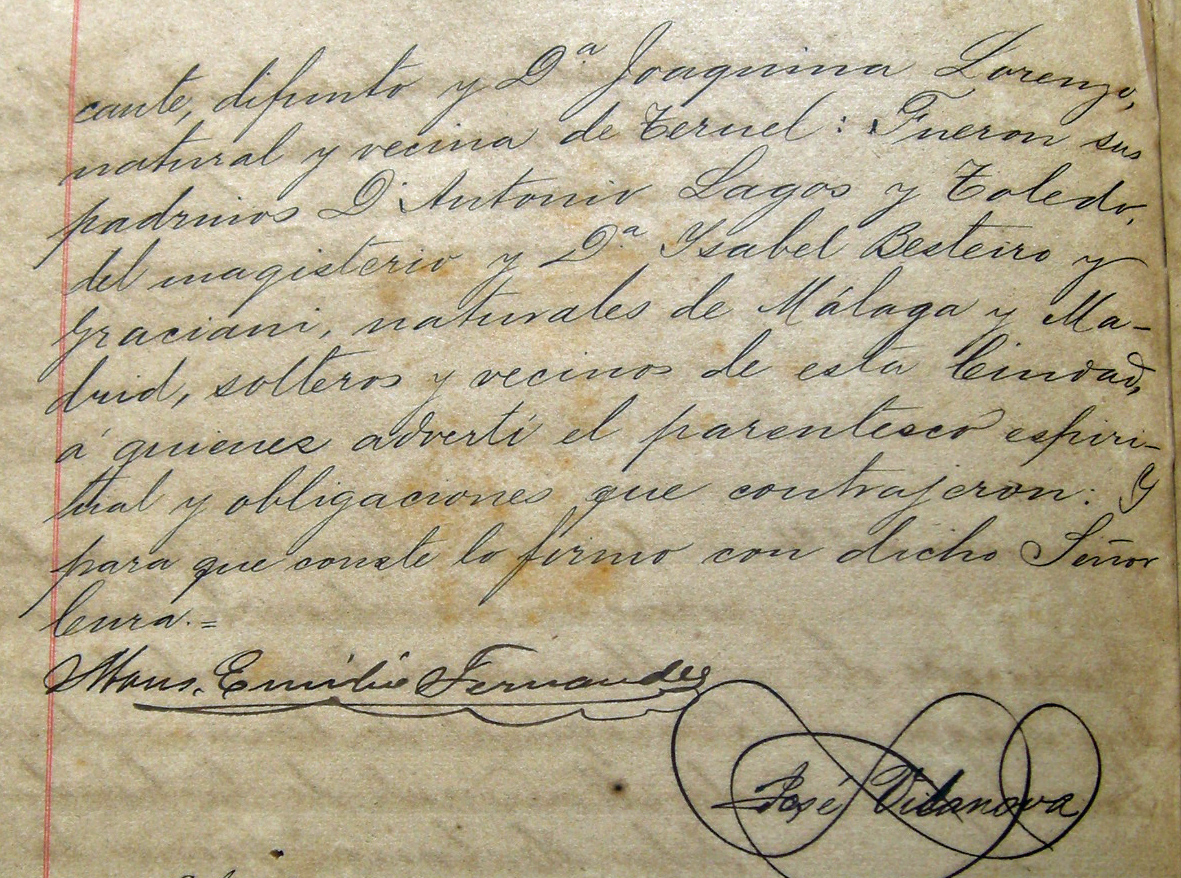 cante, difunto y D.ª Joaquina Lorenzo,
natural y vecina de Teruel: Fueron sus
padrinos D. Antonio Lagos y Toledo,
del magisterio y D.ª Ysabel Besteiro y
Graciani, naturales de Málaga y Ma-
drid, solteros y vecinos de esta Ciudad,
á quienes advertí el parentesco espiri-
tual y obligaciones que contrajeron: Y
para que conste lo firmo con dicho Señor
Cura.=
Emilio Fernandez
José Vilanova